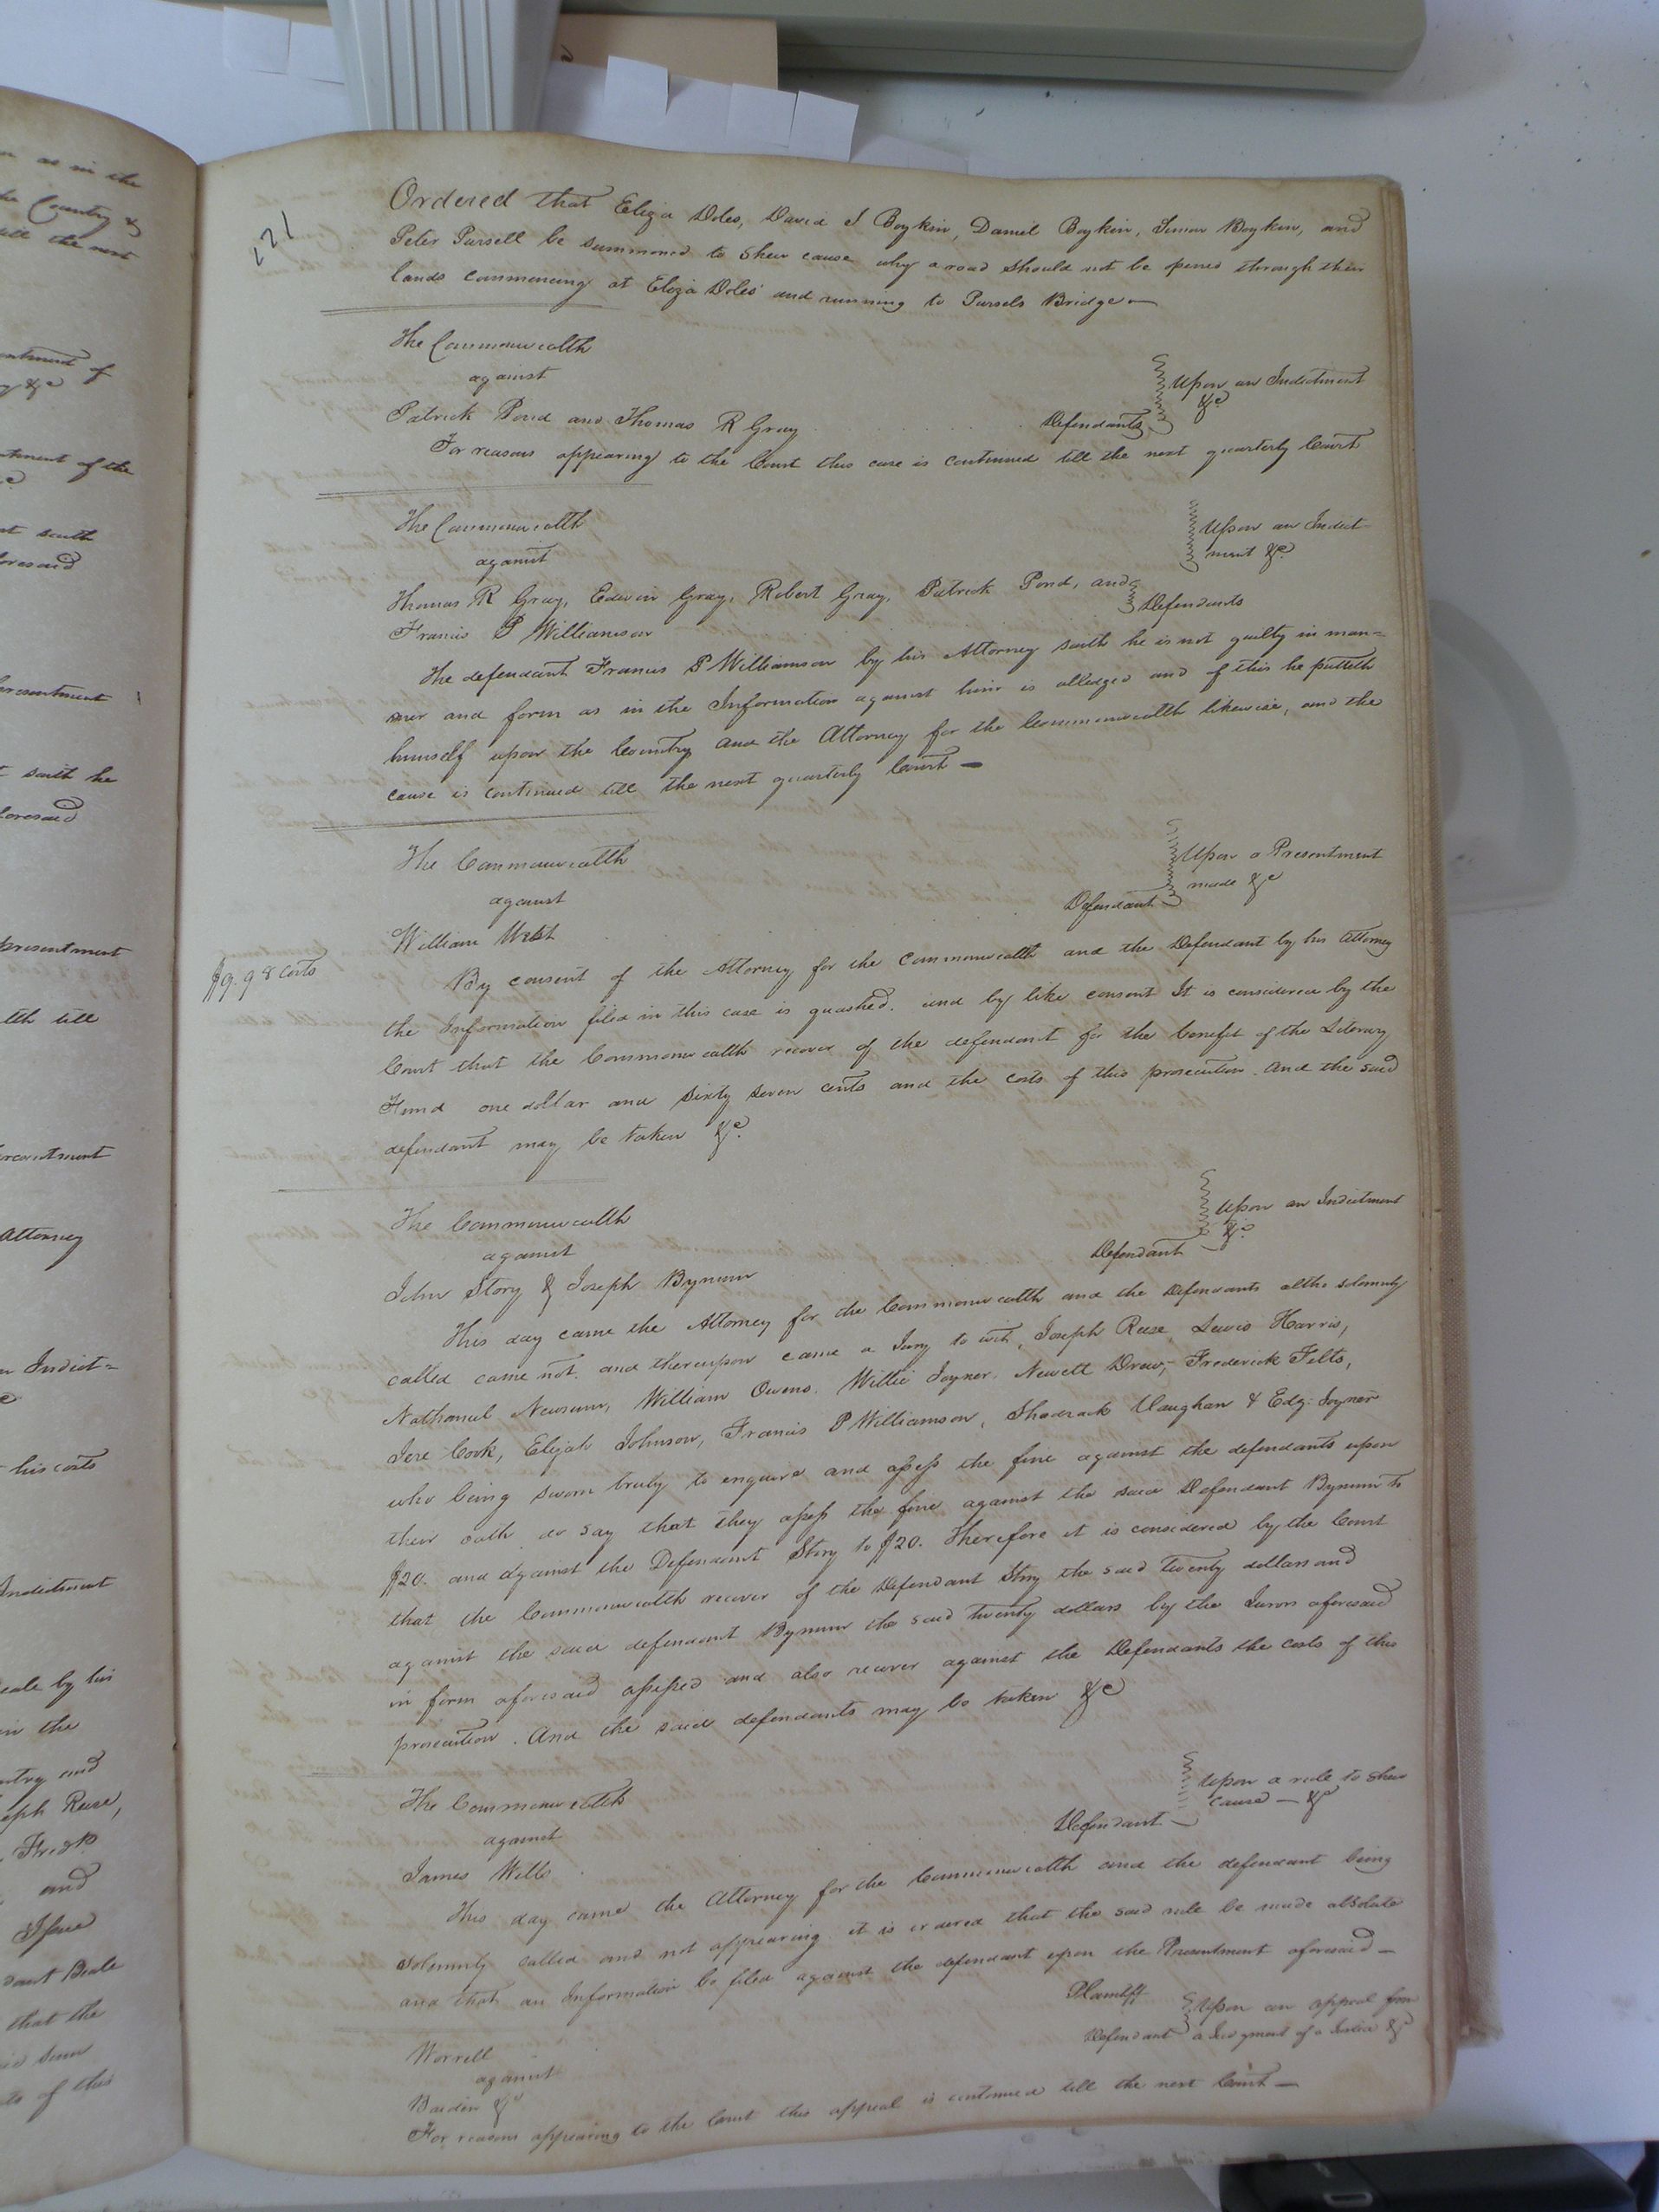 221
Ordered that Eliza Doles, David J Boykin, Daniel Boykin, Simon Boykin, and
Peter Pursell be summoned to shew cause why a road should not be opened through their
lands commencing at Eliza Doles' and running to Pursels Bridge —
The Commonwealth
against
Patrick Pond and Thomas R Gray Defendants
Upon an Indictment
&c
For reasons appearing to the Court this case is continued till the next quarterly Court
The Commonwealth
against
Thomas R Gray, Edwin Gray, Robert Gray, Patrick Pond, and
Francis P Williamson
Defendants
Upon an Indict-
ment &c.
The defendant Francis P Williamson by his Attorney saith he is not guilty in man=
ner and form as in the Information against him is alledged and of this he putteth
himself upon the Country and the Attorney for the Commonwealth likewise, and the
cause is continued till the next quarterly Court —
The Commonwealth
against
William West Defendant
Upon a Presentment
made &c
$9.98 Costs
By consent of the Attorney for the commonwealth and the Defendant by his Attorney
the Information filed in this case is quashed. and by like consent It is considered by the
Court that the Commonwealth recover of the defendant for the benefit of the Literary
Fund one dollar and sixty seven cents and the costs of this prosecution. And the said
defendant may be taken &c.
The Commonwealth
against
John Story & Joseph Bynum Defendant
Upon an Indictment
&c.
This day came the Attorney for the Commonwealth and the Defendants altho solemnly
called came not. and thereupon came a Jury to wit, Joseph Reese, Lewis Harris,
Nathaniel Newsum, William Owens, Willie Joyner, Newett Drew, Frederick Felts,
Jere Cook, Elijah Johnson, Francis P Williamson, Shadrack Vaughan & Edg: Joyner
who being sworn truly to enquire and assess the fine against the defendants upon
their oath do say that they assess the fine against the said Defendant Bynum to
$20. and against the Defendant Story to $20. Therefore it is considered by the Court
that the Commonwealth recover of the Defendant Story the said twenty dollars and
against the said defendant Bynum the said twenty dollars by the Jurors aforesaid
in form aforesaid assessed and also recover against the Defendants the costs of this
prosecution. And the said defendants may be taken &c
The Commonwealth
against
James Wills Defendant
Upon a rule to shew
cause — &c
This day came the Attorney for the Commonwealth and the defendant being
solemnly called and not appearing it is ordered that the said rule be made absolute
and that an Information be filed against the defendant upon the Presentment aforesaid —
Worrell Plaintiff
against
Barden &c Defendant
Upon an appeal from
a Judgment of a Justice &c
For reasons appearing to the Court this appeal is continued till the next Court —